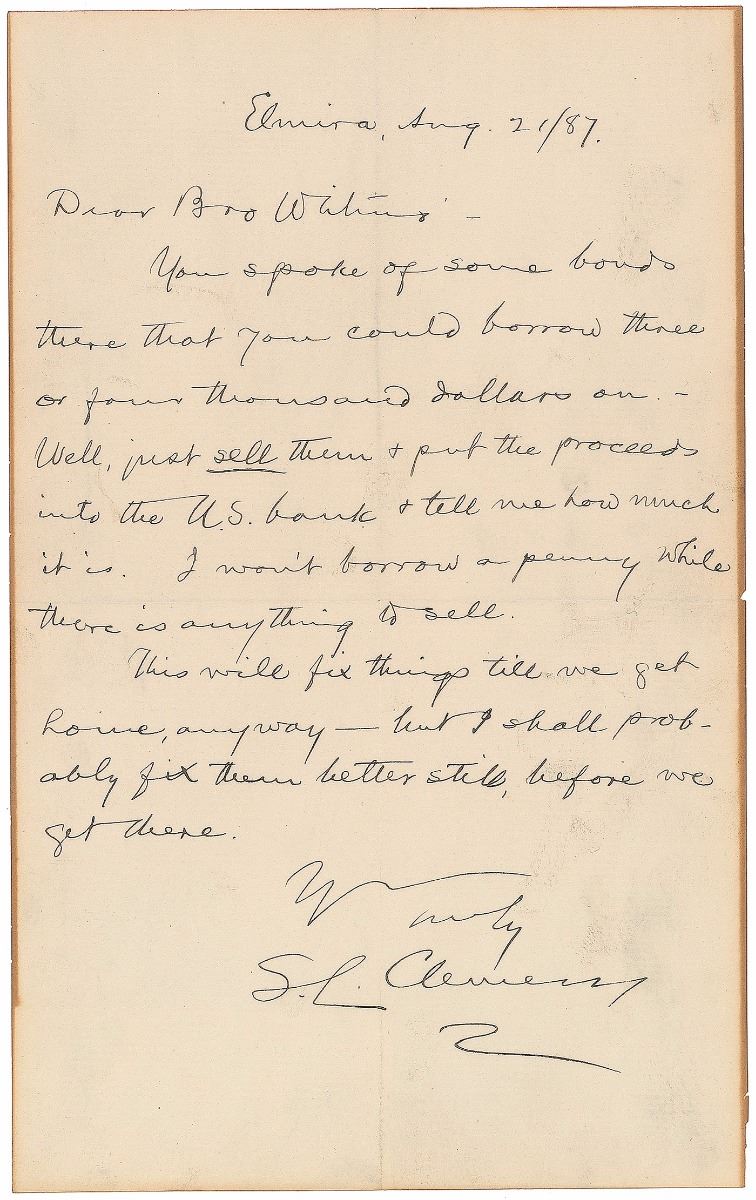 Elmira, Aug. 21/87.
Dear Bro Whitmo —
You spoke of some bonds
there that you could borrow three
or four thousand dollars on. —
Well, just sell them & put the proceeds
into the U.S. bank & tell me how much
it is. I won't borrow a penny while
there is anything to sell.
This will fix things till we get
home, anyway — but I shall prob-
ably fix them better still, before we
get there.
Yr truly
S. L. Clemens